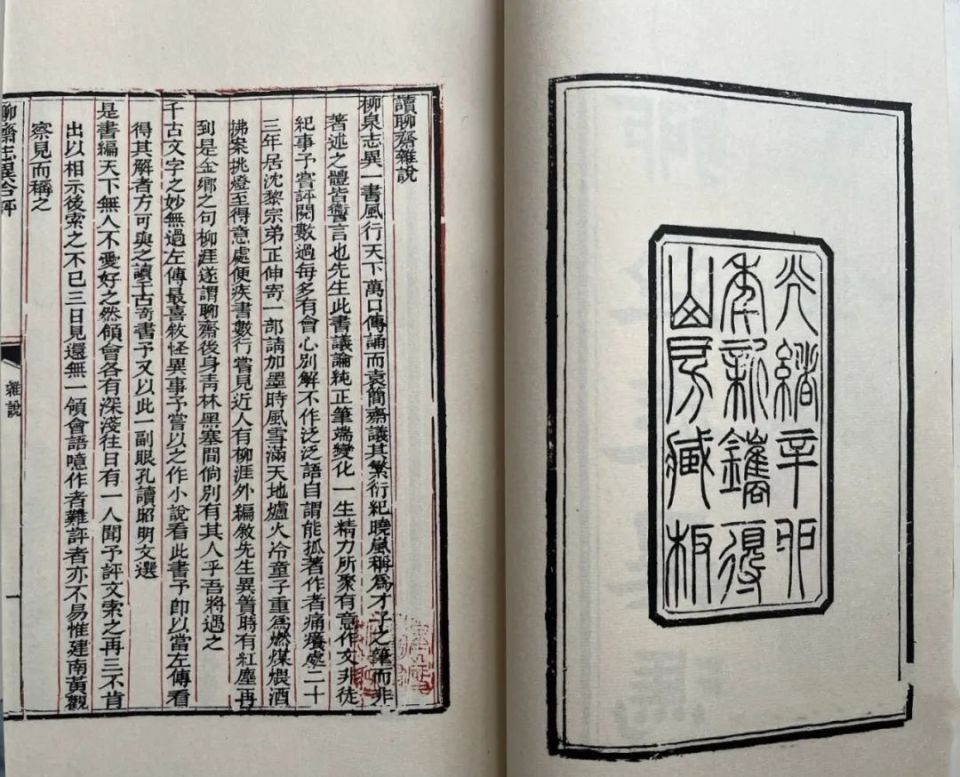 光緒辛卯
新鐫得
山房藏板
讀聊齋雜說
柳泉志異一書風行天下萬口傳誦而袁簡齋議其繁衍紀曉嵐稱爲才子之筆而非
著述之體皆讏言也先生此書議論純正筆端變化一生精力所聚有意作文非徒
紀事予嘗評閱數過每多有會心別解不作泛泛語自謂能抓著作者痛癢處二十
三年居沈黎宗弟正伸寄一部請加墨時風雪滿天地爐火冷童子重爲燃煤煨酒
拂案挑燈至得意處便疾書數行嘗見近人有柳涯外編敘先生異時有紅塵再
到是金鄉之句柳涯遂謂聊齋後身青林黑塞間倘別有其人乎吾將遇之
千古文字之妙無過左傳最喜敘怪異事予嘗以之作小說看此書予即以當左傳看
得其解者方可與之讀千古奇書予又以此一副眼孔讀昭明文選
是書編天下無人不愛好之然領會各有深淺往日有一人聞予評文索之再三不肯
出以相示後索之不已三日見還無一領會語噫作者難評者亦不易惟建南黃觀
察見而稱之
聊齋志異合評
雜說
一